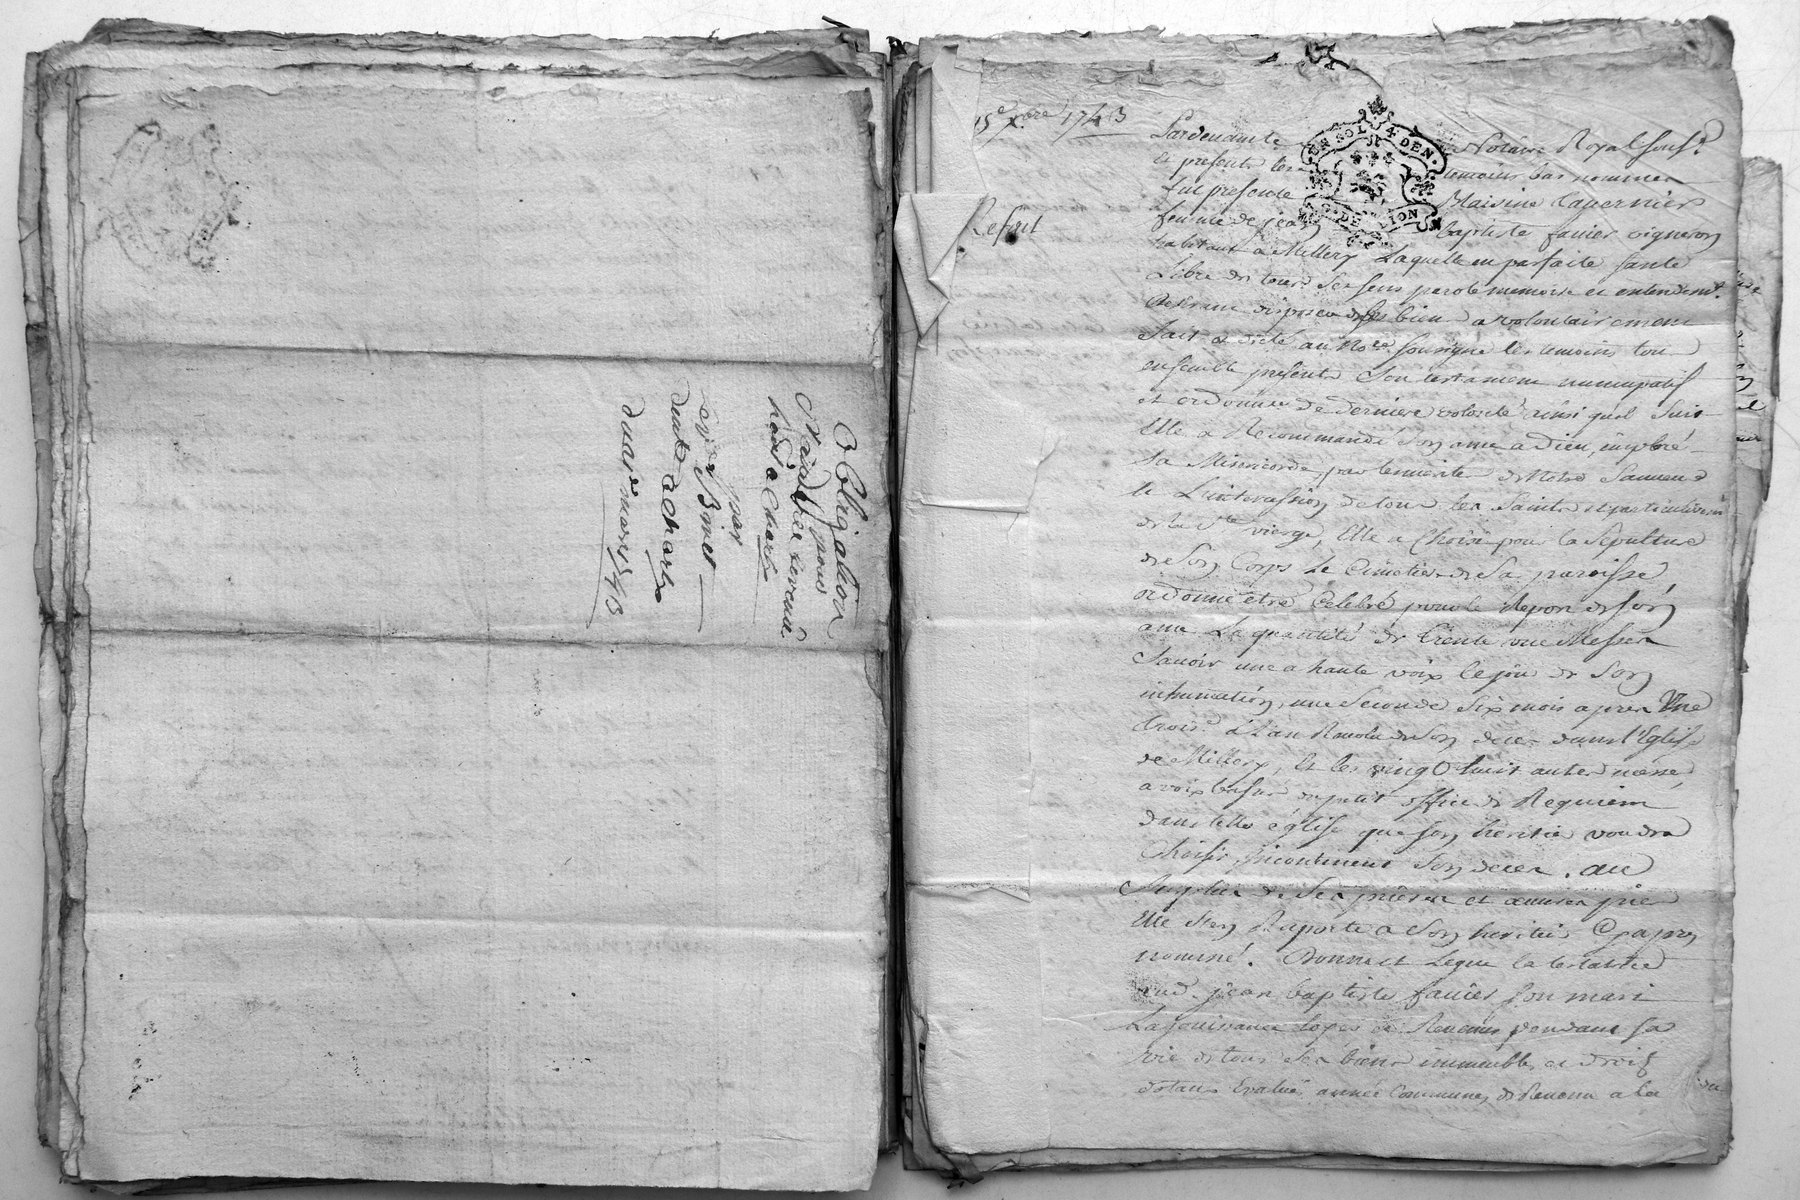 Obligation
pour
par
Binet
du 21 mars 1743
15e xbre 1743
Refait
UN SOL 4 DEN
G. DE LION
Pardevant le Notaire Royal sousé
et presents les temoins bas nommes
fut presente Maisine tavernier
femme de jean baptiste favier vigneron
habitant a Millery Laquelle en parfaite santé
Libre de tous ses sens parole memoire et entendemt
desirant disposer de ses bien a volontairement
fait et dicté au Nore sousigné les temoins tou
ensemble presents Son testament nuncupatif
et ordonnance de derniere volonté ainsi quil suit
Elle a Recommandé Son ame a Dieu, imploré
sa Misericorde par le merite de Notre Sauveur
et L'intercession de tous les Saints et particulierem
de la Ste vierge, Elle a Choisi pour la Sepulture
de Son Corps Le Cimetiere de Sa paroisse,
ordonne etre Celebré pour le Repos de Son
ame La quantité de trente une Messes
Savoir une a haute voix le jour de Son
inhumation, une Seconde Six mois apres Une
trois.e à L'an Revolu de Son deces dans l'Eglise
de Millery, Et les vingt huit autres messe
a voix basse du petit office de Requiem
dans telle église que Son heritier voudra
Choisir, incontinent Son deces. au
Surplus de Ses prieres et oeuvres pies
Elle s'en Raporte a Son heritier Cyapres
nommé. Donne et Legue la testatrice
aud. jean baptiste favier Son mari
La jouissance et Revenus pendant Sa
vie de tous Ses biens immeubles et droits
Evalué année Commune de Revenu a la